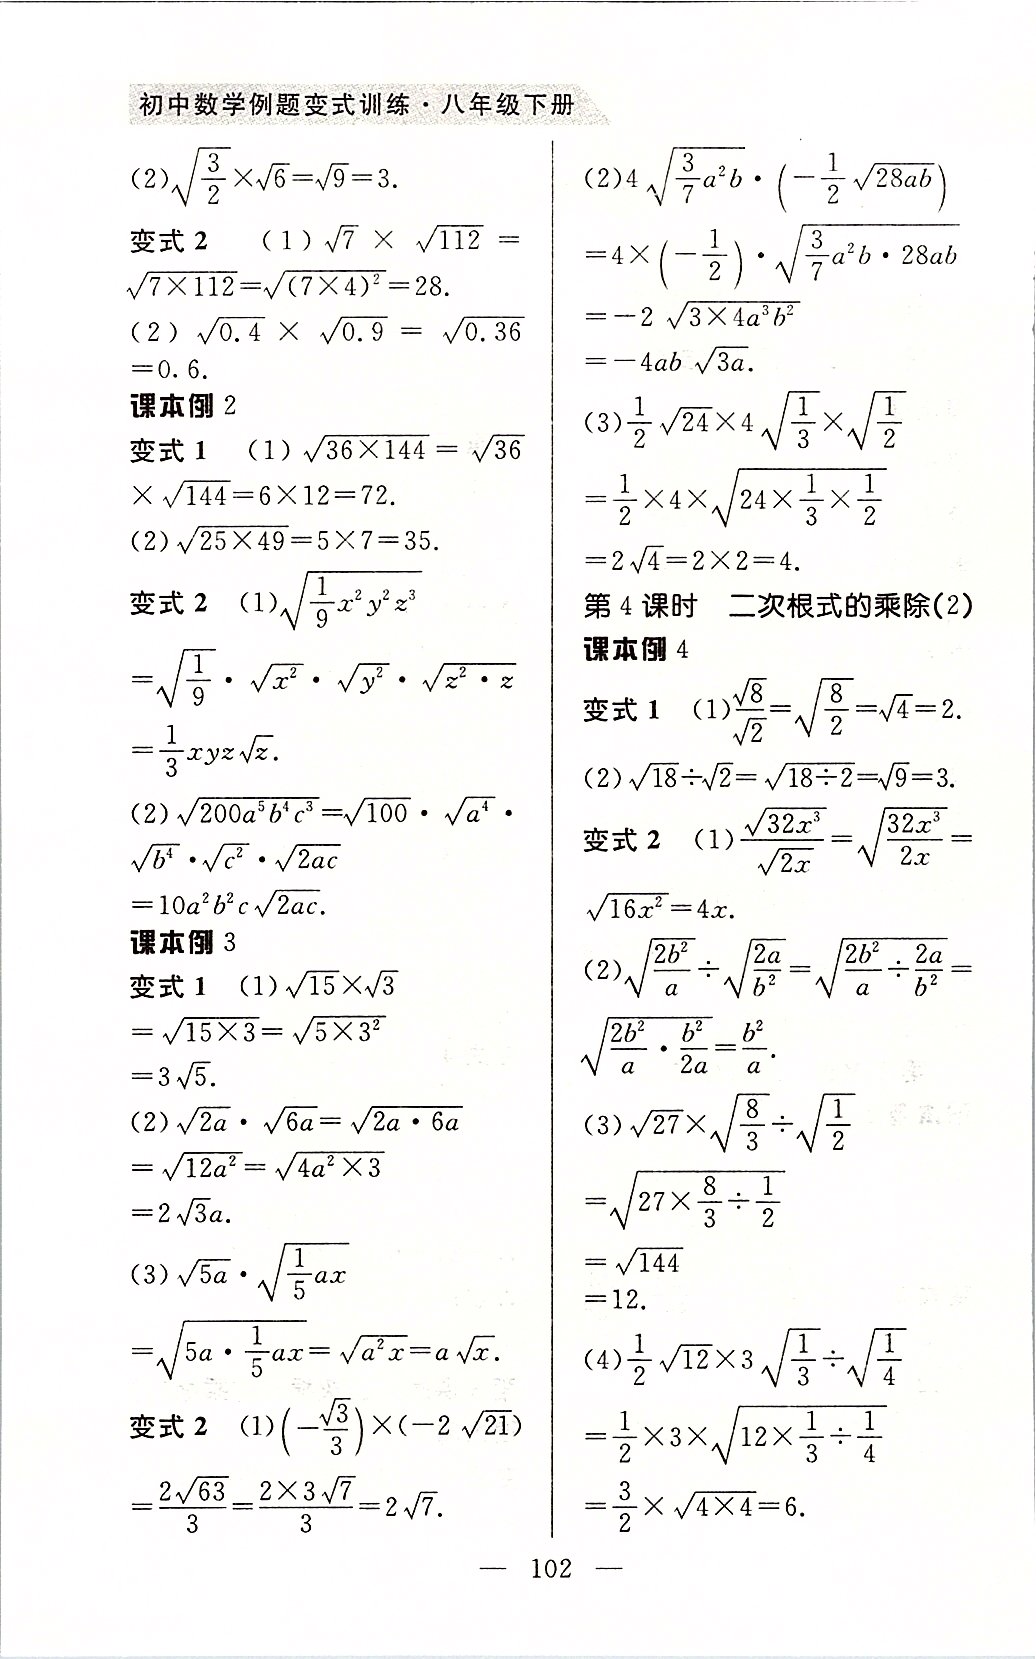 初中数学例题变式训练·八年级下册
(2)√(3/2)×√6=√9=3.
变式 2 (1)√7 × √112 =
√(7×112)=√((7×4)²)=28.
(2) √0.4 × √0.9 = √0.36
=0.6.
课本例 2
变式 1 (1) √(36×144) = √36
× √144=6×12=72.
(2)√(25×49)=5×7=35.
变式 2 (1)√(1/9 x²y²z³)
=√(1/9)·√(x²)·√(y²)·√(z²·z)
=1/3 xyz√z.
(2)√(200a⁵b⁴c³)=√100·√(a⁴)·
√(b⁴)·√(c²)·√(2ac)
=10a²b²c√(2ac).
课本例 3
变式 1 (1)√15×√3
=√(15×3)=√(5×3²)
=3√5.
(2)√(2a)·√(6a)=√(2a·6a)
=√(12a²)=√(4a²×3)
=2√3a.
(3)√(5a)·√(1/5 ax)
=√(5a·1/5 ax)=√(a²x)=a√x.
变式 2 (1)(-√3/3)×(-2√21)
=2√63/3=2×3√7/3=2√7.
(2)4√(3/7 a²b)·(-1/2 √(28ab))
=4×(-1/2)·√(3/7 a²b·28ab)
=-2√(3×4a³b²)
=-4ab√(3a).
(3)1/2 √24×4√(1/3)×√(1/2)
=1/2×4×√(24×1/3×1/2)
=2√4=2×2=4.
第 4 课时 二次根式的乘除(2)
课本例 4
变式 1 (1)√8/√2=√(8/2)=√4=2.
(2)√18÷√2=√(18÷2)=√9=3.
变式 2 (1)√(32x³)/√(2x)=√(32x³/2x)=
√(16x²)=4x.
(2)√(2b²/a)÷√(2a/b²)=√(2b²/a÷2a/b²)=
√(2b²/a·b²/2a)=b²/a.
(3)√27×√(8/3)÷√(1/2)
=√(27×8/3÷1/2)
=√144
=12.
(4)1/2 √12×3√(1/3)÷√(1/4)
=1/2×3×√(12×1/3÷1/4)
=3/2×√(4×4)=6.
— 102 —